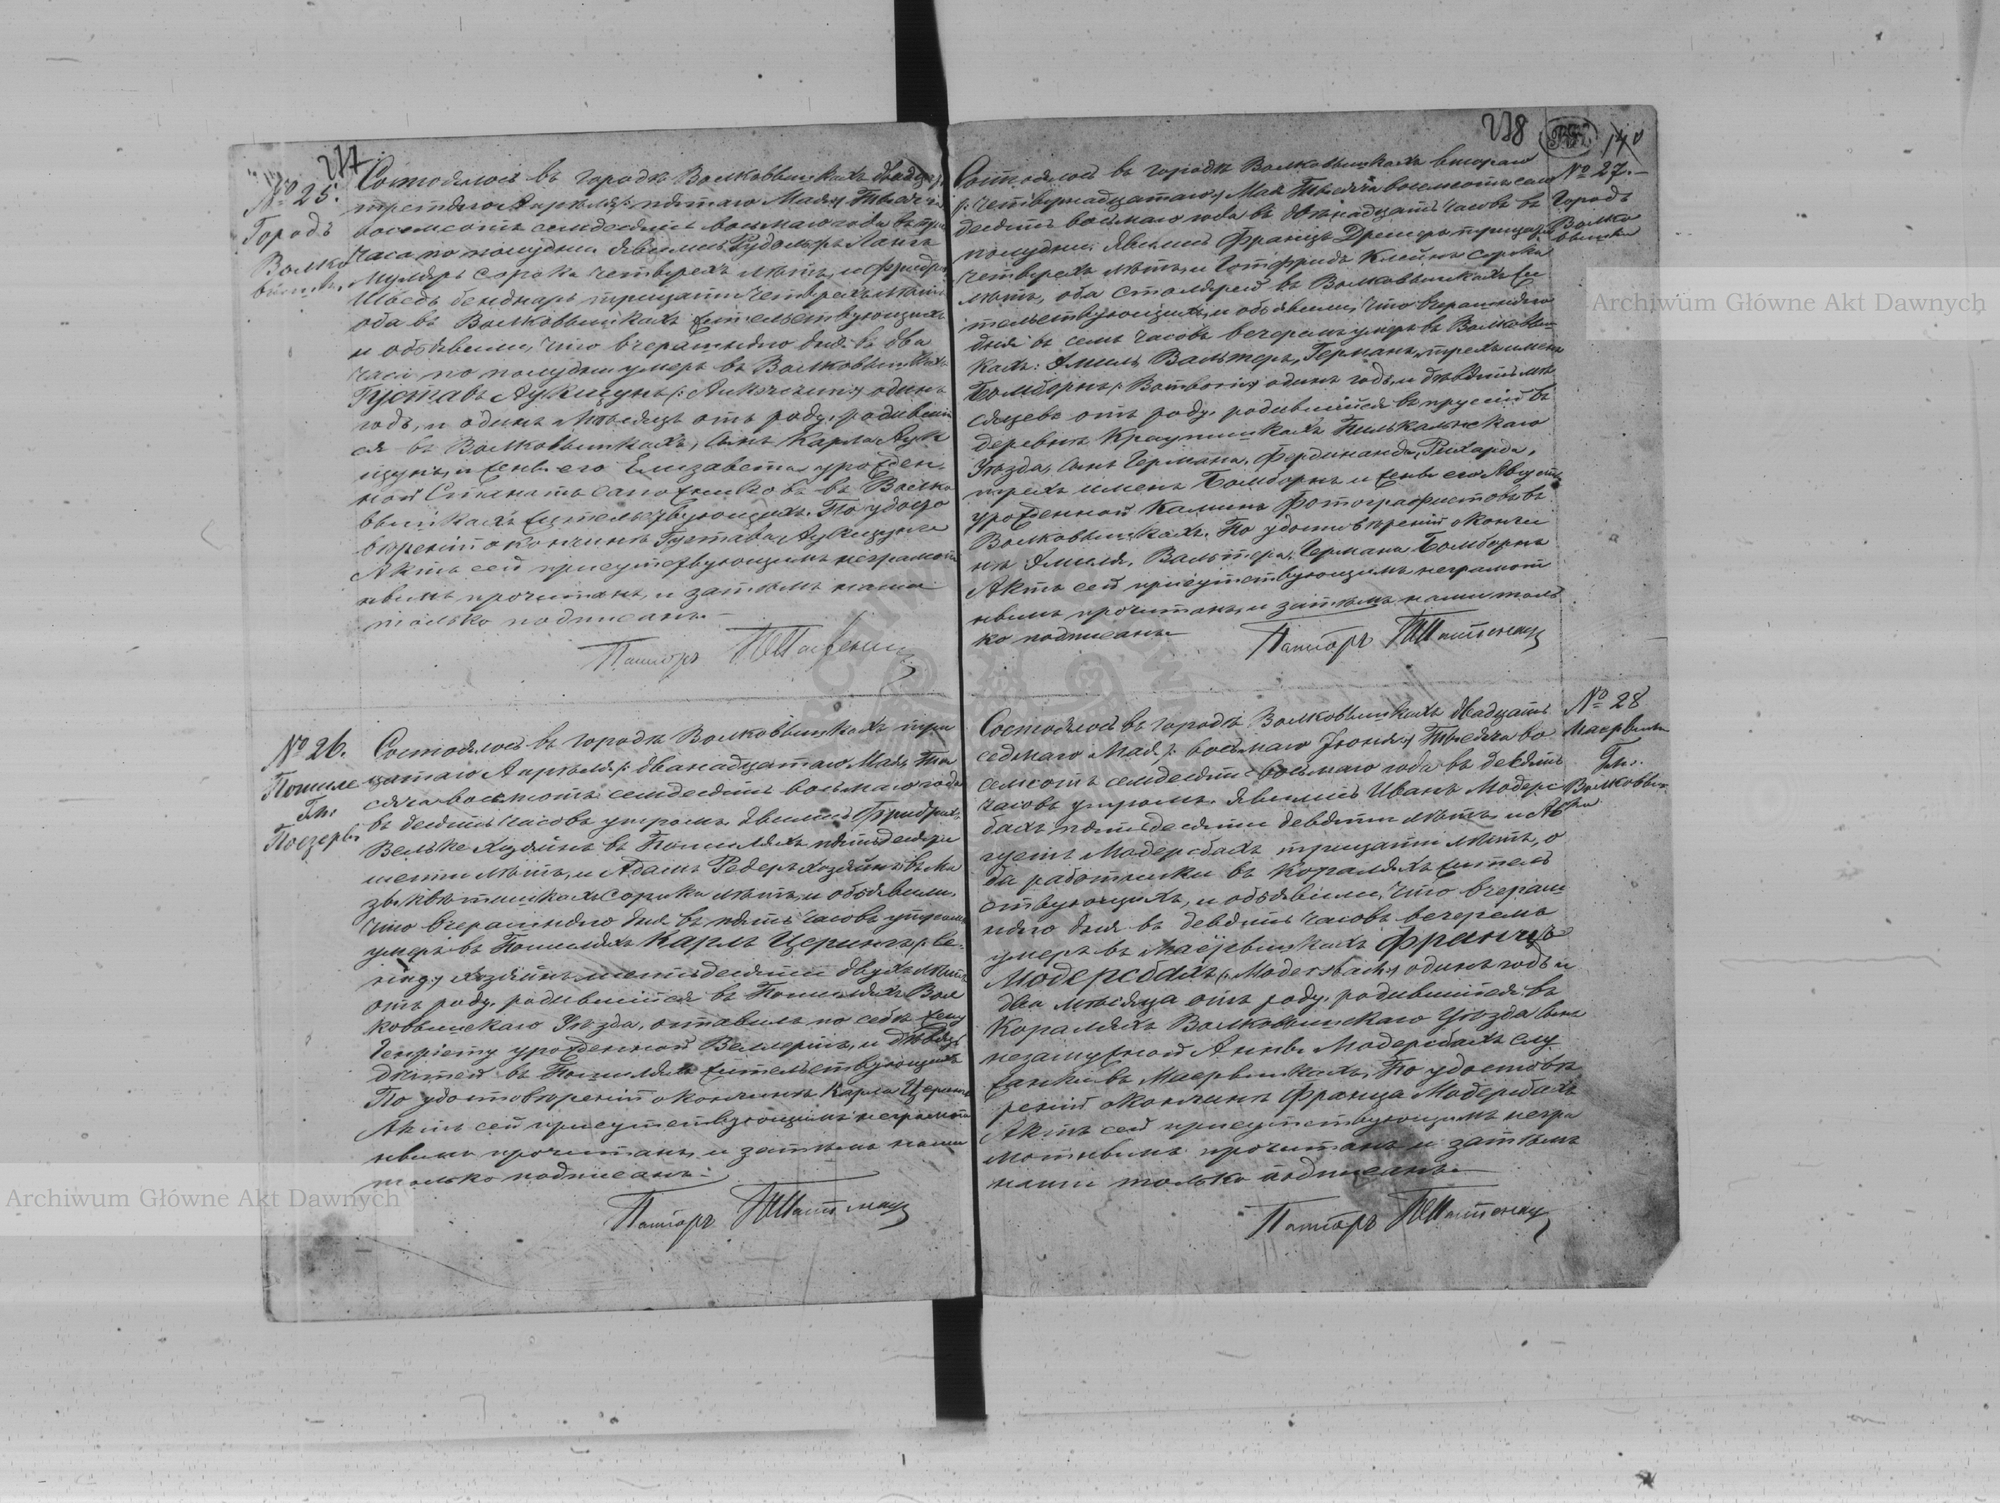 237
№ 25.
Городъ
Волко
вышки.
Состоялось въ городѣ Волковышкахъ двадцать
третьяго Апрѣля /: пятаго Мая :/ тысяча
восемсотъ семдесятъ восьмаго года въ три
часа по полудни. Явились Рудольфъ Лангъ
Муляръ сорока четырехъ лѣтъ, и Фридрихъ
бенднаръ тридцати четырехъ лѣтъ
оба въ Волковышкахъ жительствующихъ
и объявили, что вчерашняго дня въ два
часа по полудни умеръ въ Волковышкахъ
Густавъ одинъ
годъ, и одинъ мѣсяцъ отъ роду, родивший
ся въ Волковышкахъ, сынъ Карла
и жены его Елизаветы урожден
ной въ Волко
вышкахъ жительствующихъ. По удосто
вѣреніи о кончинѣ Густава
Актъ сей присутствующимъ неграмот
нымъ прочитанъ, и затѣмъ нами
только подписанъ.
Пасторъ
№ 26.
Пошиле
Гм:
Поезеры
Состоялось въ городѣ Волковышкахъ три
дцатаго Апрѣля /: двѣнадцатаго Мая :/ ты
сяча восемсотъ семдесятъ восьмаго года
въ десять часовъ утромъ. Явились Фридрихъ
Вельке хозяинъ въ Пошиляхъ пятьдесяти
шести лѣтъ, и Адамъ Редеръ хозяинъ въ Ма
сорока лѣтъ, и объявили,
что вчерашняго дня въ пять часовъ утромъ
умеръ въ Пошиляхъ Карлъ Церингъ /: Ze-
ring :/ хозяинъ шестьдесяти двухъ лѣтъ
отъ роду, родившійся въ Пошиляхъ Вол
ковышскаго Уѣзда, оставилъ по себѣ жену
Генріету урожденной и
дѣтей въ Пошиляхъ жительствующихъ
По удостовѣреніи о кончинѣ Карла Церинга
Актъ сей присутствующимъ неграмот
нымъ прочитанъ, и затѣмъ нами
только подписанъ.
Пасторъ
238
140
№ 27.
Городъ
Волко
вышки
Состоялось въ городѣ Волковышкахъ втораго
/: четырнадцатаго :/ Мая тысяча восемсотъ сем
десятъ восьмаго года въ двѣнадцать часовъ въ
полудни. Явились Францъ тридцати
четырехъ лѣтъ, и Готфридъ Клейнъ сорока
лѣтъ, оба столяреи въ Волковышкахъ жи
тельствующихъ, и объявили, что вчерашняго
дня въ семь часовъ вечеромъ умеръ въ Волковыш
кахъ: Эмиль, Вальтеръ, Германъ, трехъ именъ
Бомборнъ /: Bomborn :/ одинъ годъ, и девять мѣ
сяцевъ отъ роду, родившійся въ Пруссіи въ
деревнѣ Краупишкахъ Пилькальнскаго
Уѣзда, сынъ Германа, Фердинанда, Рихарда,
трехъ именъ Бомборнъ и жены его Августы
урожденной Калина Фотографистовъ въ
Волковышкахъ. По удостовѣреніи о кончи
нѣ Эмиля, Вальтера, Германа Бомборнъ
Актъ сей присутствующимъ неграмот
нымъ прочитанъ, и затѣмъ нами толь
ко подписанъ
Пасторъ
№ 28
Маервишки
Гм:
Волковыш
ки
Состоялось въ городѣ Волковышкахъ двадцать
седмаго Мая /: восьмаго Іюня :/ тысяча во
семсотъ семдесятъ восьмаго года въ десять
часовъ утромъ. Явились Иванъ Модерс
бахъ пятьдесяти девяти лѣтъ, и Ав
густъ Модерсбахъ тридцати лѣтъ, о
ба работники въ Кораляхъ житель
ствующихъ, и объявили, что вчераш
няго дня въ девять часовъ вечеромъ
умеръ въ Маервишкахъ Францъ
Модерсбахъ /: Modersbach :/ одинъ годъ и
два мѣсяца отъ роду, родившійся въ
Кораляхъ Волковышскаго Уѣзда сынъ
незамужной Анны Модерсбахъ слу
жанки въ Маервишкахъ. По удостовѣ
реніи о кончинѣ Франца Модерсбахъ
Актъ сей присутствующимъ негра
мотнымъ прочитанъ и затѣмъ
нами только подписанъ.
Пасторъ
Archiwum Główne Akt Dawnych
Archiwum Główne Akt Dawnych